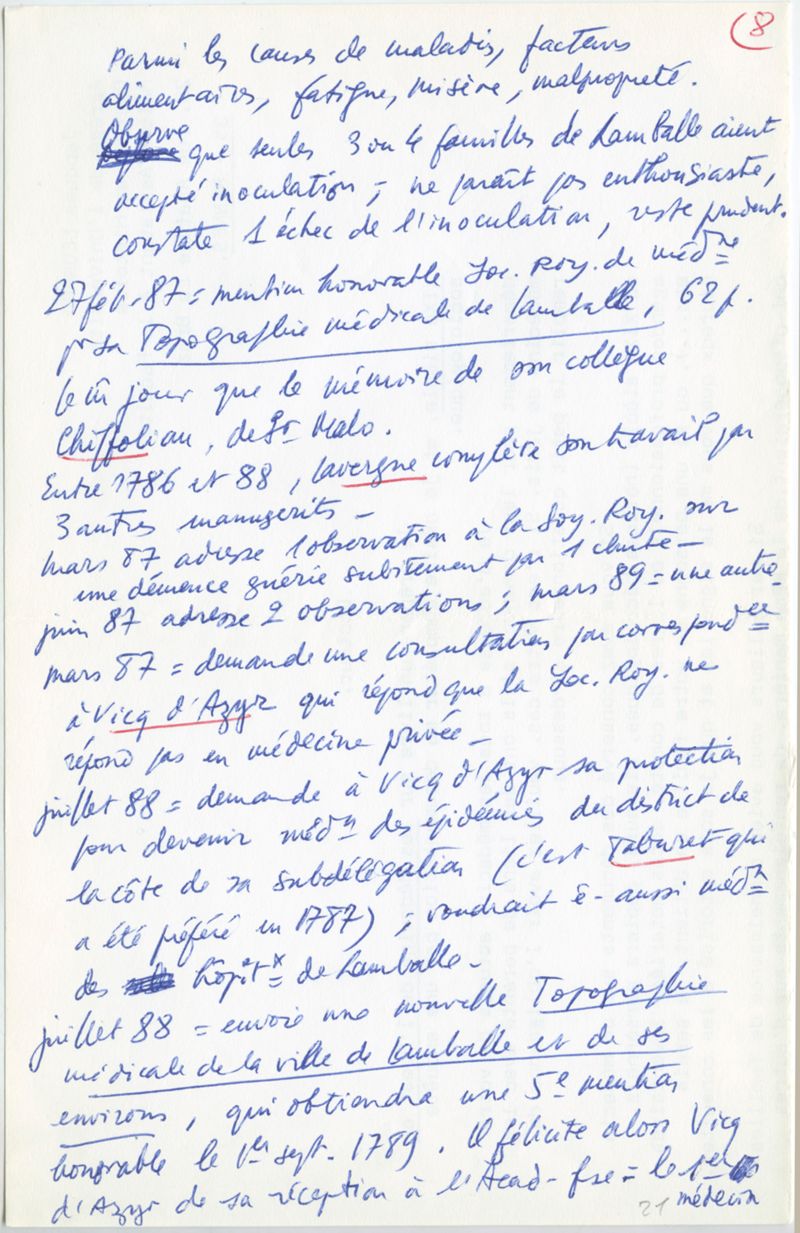 (8
Parmi les causes de maladies, facteurs
alimentaires, fatigue, misère, malpropreté.
Observe
que seules 3 ou 4 familles de Lamballe aient
accepté inoculation ; ne paraît pas enthousiaste,
constate 1 échec de l'inoculation, reste prudent.
27 fév. 87 = mention honorable Soc. Roy. de médne
pr sa Topographie médicale de Lamballe, 62 p.
le m̂ jour que le mémoire de son collègue
Chiffoliau, de St Malo.
Entre 1786 et 88, Lavergne complète son travail par
3 autres manuscrits –
mars 87 adresse 1 observation à la Soy. Roy. sur
une démence guérie subitement par 1 chute –
juin 87 adresse 2 observations ; mars 89 = une autre
mars 87 = demande une consultation par correspondce
à Vicq d'Azyr qui répond que la Soc. Roy. ne
répond pas en médecine privée –
juillet 88 = demande à Vicq d'Azyr sa protection
pour devenir médn des épidémies du district de
la côte de sa subdélégation (c'est Taburet qui
a été préféré en 1787) ; voudrait ê- aussi médn
des hôpitx de Lamballe –
juillet 88 = envoie une nouvelle Topographie
médicale de la ville de Lamballe et de ses
environs, qui obtiendra une 5e mention
honorable le 1er sept. 1789. Il félicite alors Vicq
d'Azyr de sa réception à l'Acad- fse = le 1er
médecin
21